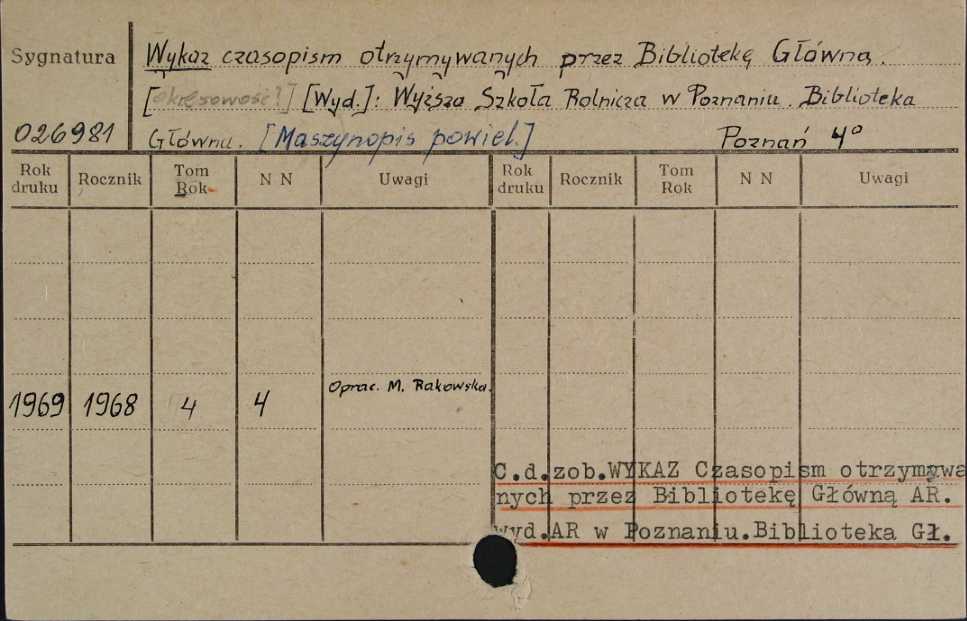 Sygnatura
Wykaz czasopism otrzymywanych przez Bibliotekę Główną.
[okresowość?] [Wyd.]: Wyższa Szkoła Rolnicza w Poznaniu. Biblioteka
026981 Główna. [Maszynopis powiel.] Poznań 4°
Rok druku Rocznik Tom Rok N N Uwagi Rok druku Rocznik Tom Rok N N Uwagi
1969 1968 4 4 Oprac. M. Rakowska.
C.d.zob.WYKAZ Czasopism otrzymywa
nych przez Bibliotekę Główną AR.
wyd.AR w Poznaniu.Biblioteka Gł.